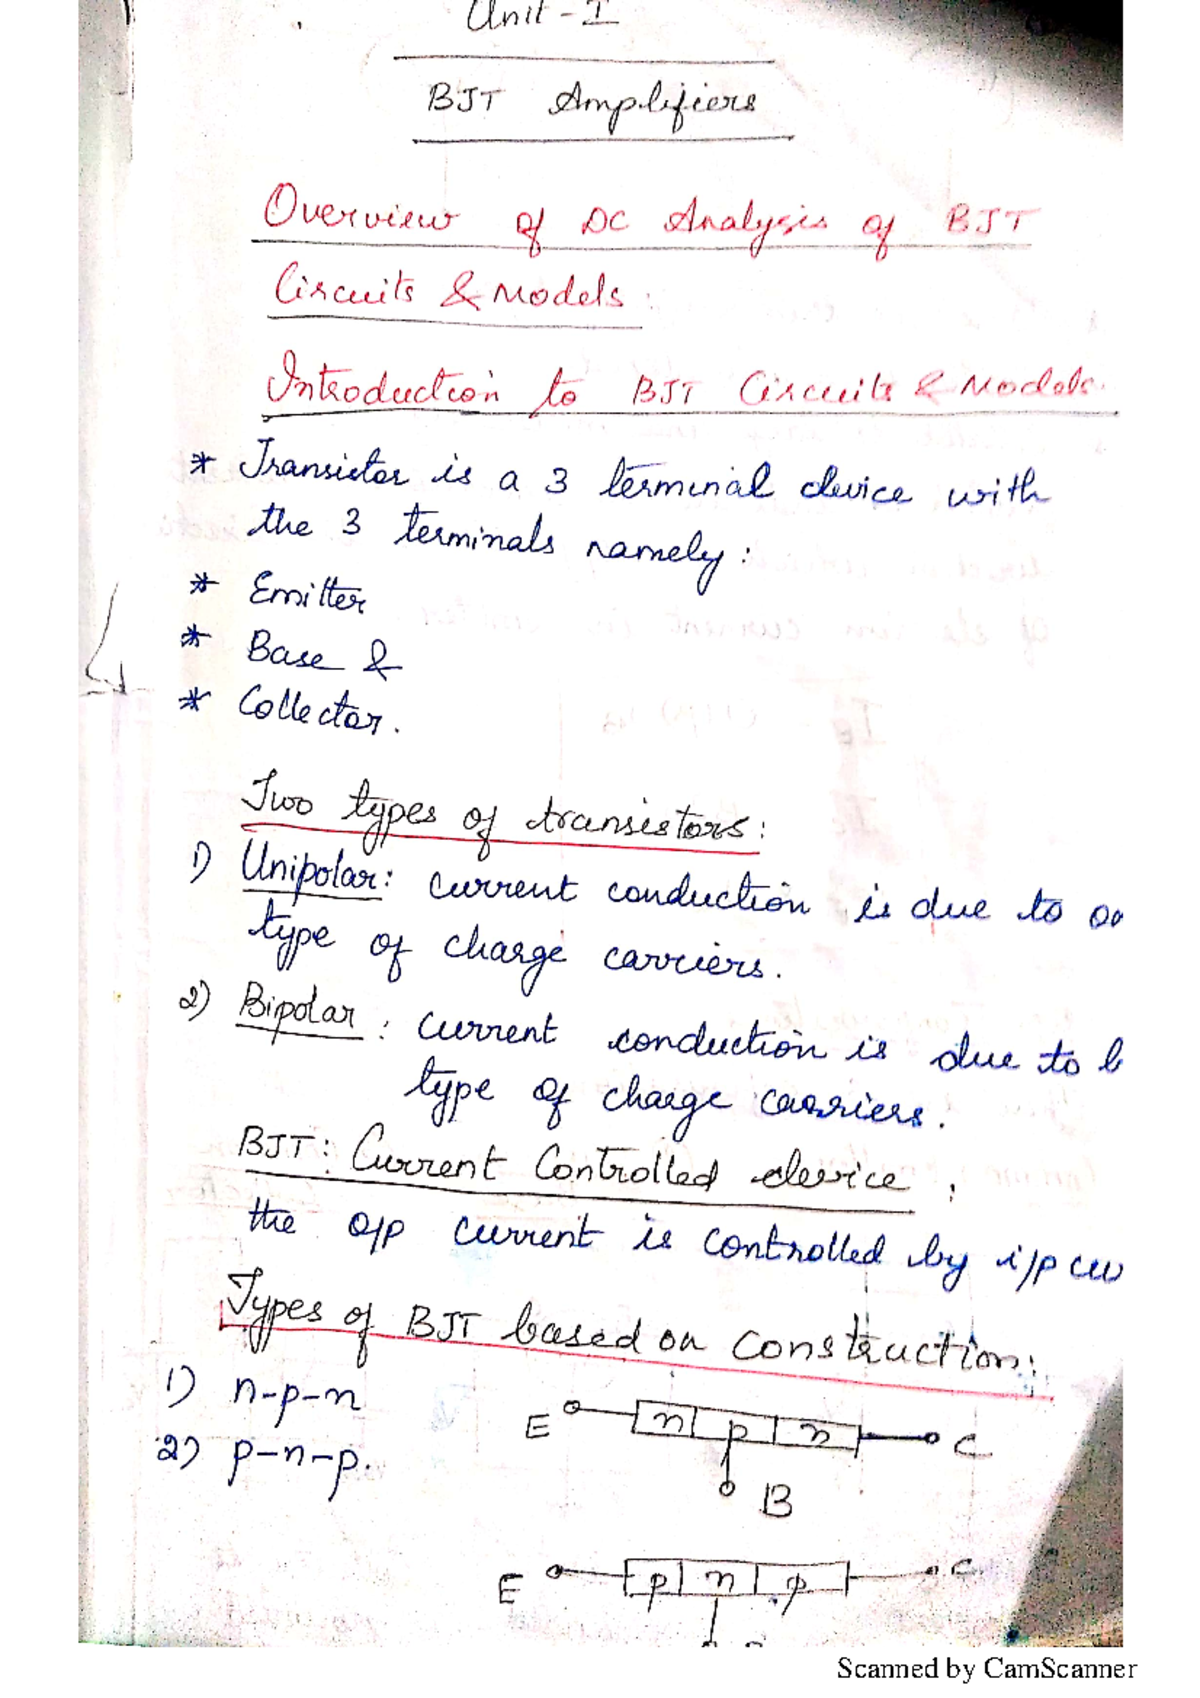 Unit - I
BJT Amplifiers
Overview of DC Analysis of BJT
Circuits & Models:
Introduction to BJT Circuits & Models.
* Transistor is a 3 terminal device with
the 3 terminals namely:
* Emitter
* Base &
* Collector.
Two types of transistors:
1) Unipolar: current conduction is due to
type of charge carriers.
2) Bipolar: current conduction is due to
type of charge carriers.
BJT: Current Controlled device;
the o/p current is controlled by i/p
Types of BJT based on construction:
1) n-p-n
E n p n C
B
2) p-n-p.
E p n p C
Scanned by CamScanner